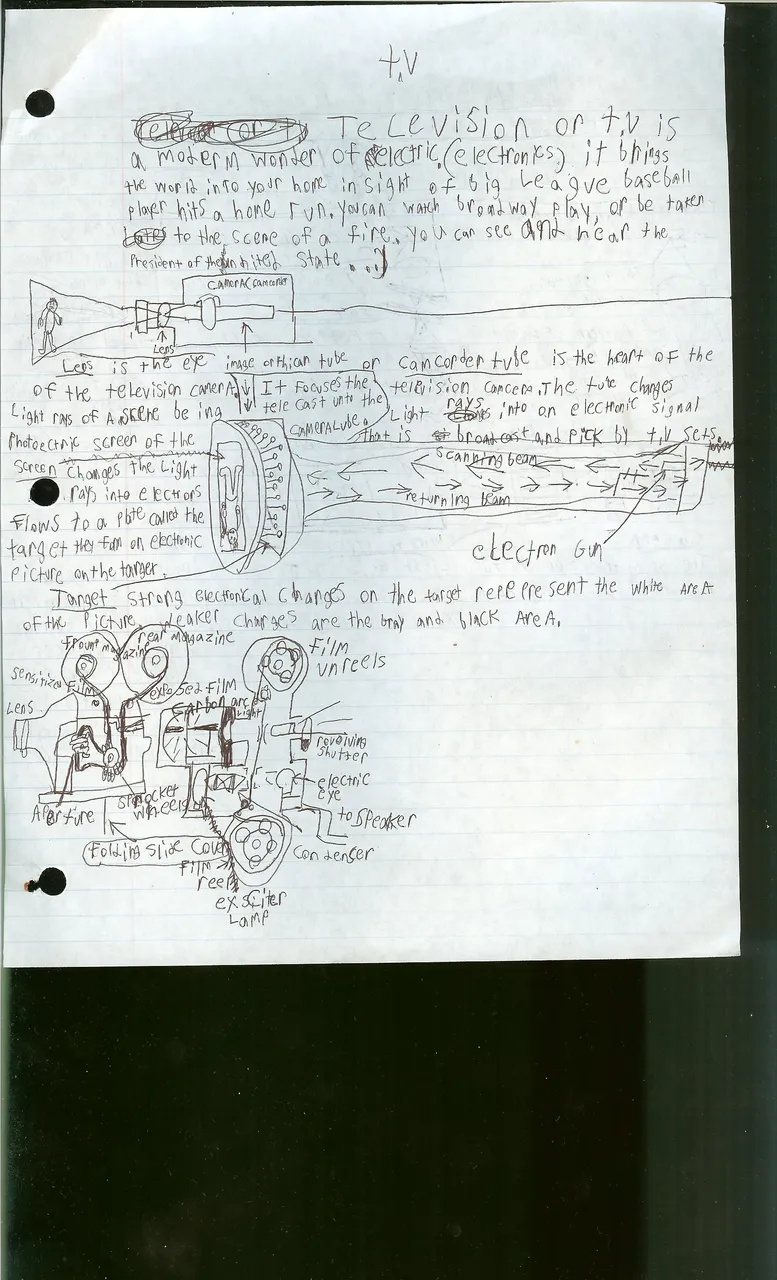 t.V
TELEVision or t.v is
a moderm wonder of electric.(electronics.) it brings
the world into your home in sight of big League baseball
player hits a home run. you can watch broadway play, or be taken
to the scene of a fire. you can see and hear the
President of the united State...)
camera(camcorder
Lens
Lens is the eye image orthican tube or camcorder tube is the heart of the
of the television camera. It Focuses the television camera. The tube changes
tele cast unto the
Light rays of A scene being Light rays into an electronic signal
cameratube. that is broad cast and pick by t.v sets.
Photoectric screen of the
Screen changes the Light
rays into electrons
Flows to a plate called the
target they form on electronic
picture on the targer.
scanning beam
returning beam
electron Gun
Target strong electronical changes on the target reperesent the white AreA
of the picture. weaker charges are the bray and black AreA.
Frount magazine
rear magazine
Film
unreels
sensitized
Film
exposed Film
carbon arc
Light
Lens
revolving
shutter
electric
eye
Aperture
sprocket
wheels
to speaker
Folding slide cover
Condenser
Film
reel
exsiter
Lamp